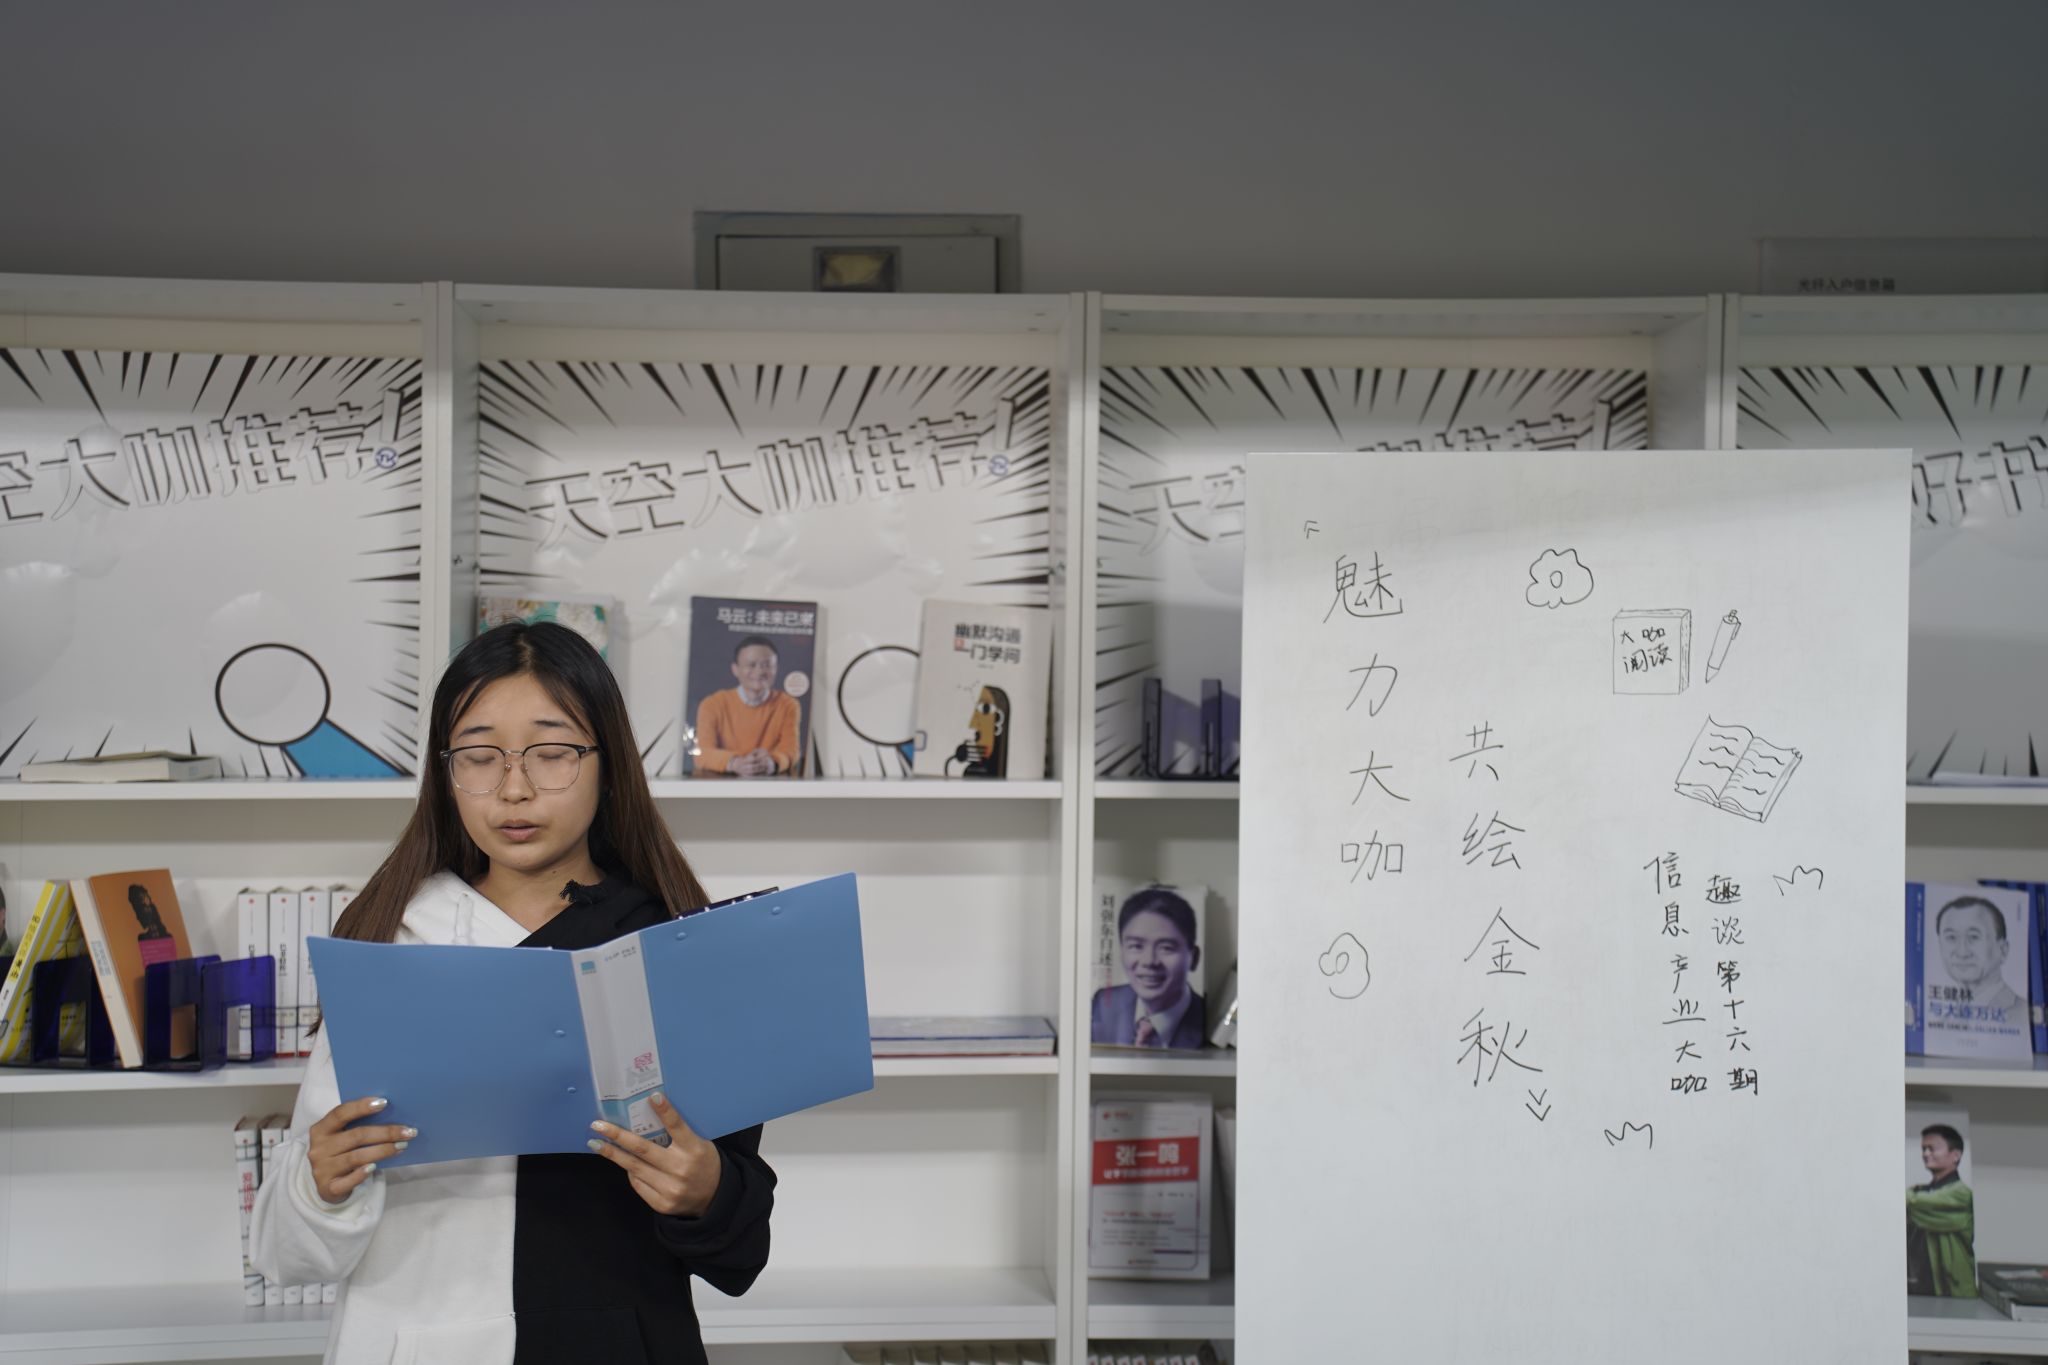 光纤入户信息箱
空大咖推荐!
天空大咖推荐!
天空
咖推荐!
好书
马云:未来已来
幽默沟通
是一门学问
魅力大咖
共绘金秋
大咖
阅读
信息产业大咖
趣谈第十六期
刘强东自述
王健林
与大连万达
张一鸣